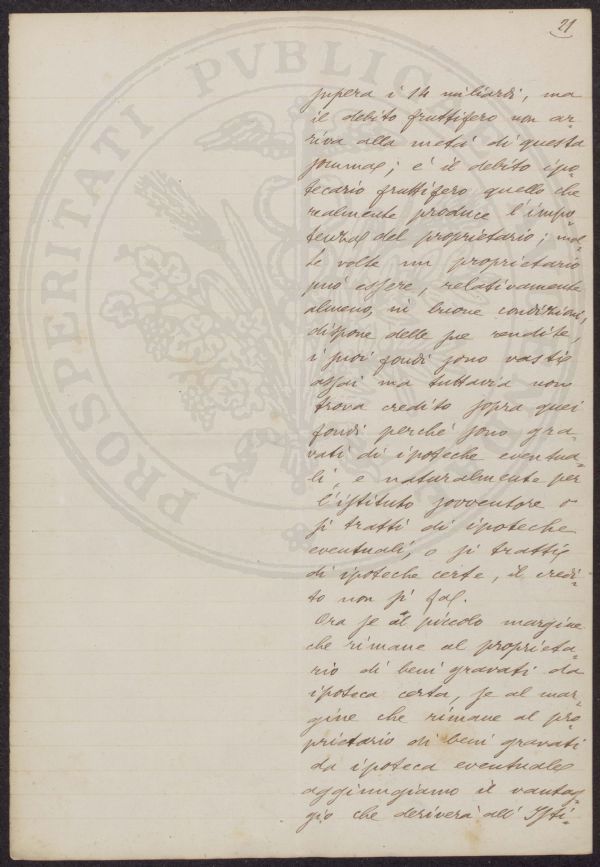 21
supera i 14 miliardi, ma
il debito fruttifero non ar-
riva alla metà di questa
somma; è il debito ipo-
tecario fruttifero quello che
realmente produce l'impo-
tenza del proprietario; mol-
te volte un proprietario
può essere, relativamente
almeno, in buone condizioni,
dispone delle sue rendite,
i suoi fondi sono vasti
assai ma tuttavia non
trova credito sopra quei
fondi perchè sono gra-
vati di ipoteche eventua-
li, e naturalmente per
l'istituto sovventore o
si tratti di ipoteche
eventuali, o si tratti
di ipoteche certe, il credi-
to non si fa.
Ora se al piccolo margine
che rimane al proprieta-
rio di beni gravati da
ipoteca certa, se al mar-
gine che rimane al pro-
prietario di beni gravati
da ipoteca eventuale
aggiungiamo il vantag-
gio che deriverà all'Isti-
PROSPERITATI PVBLIC